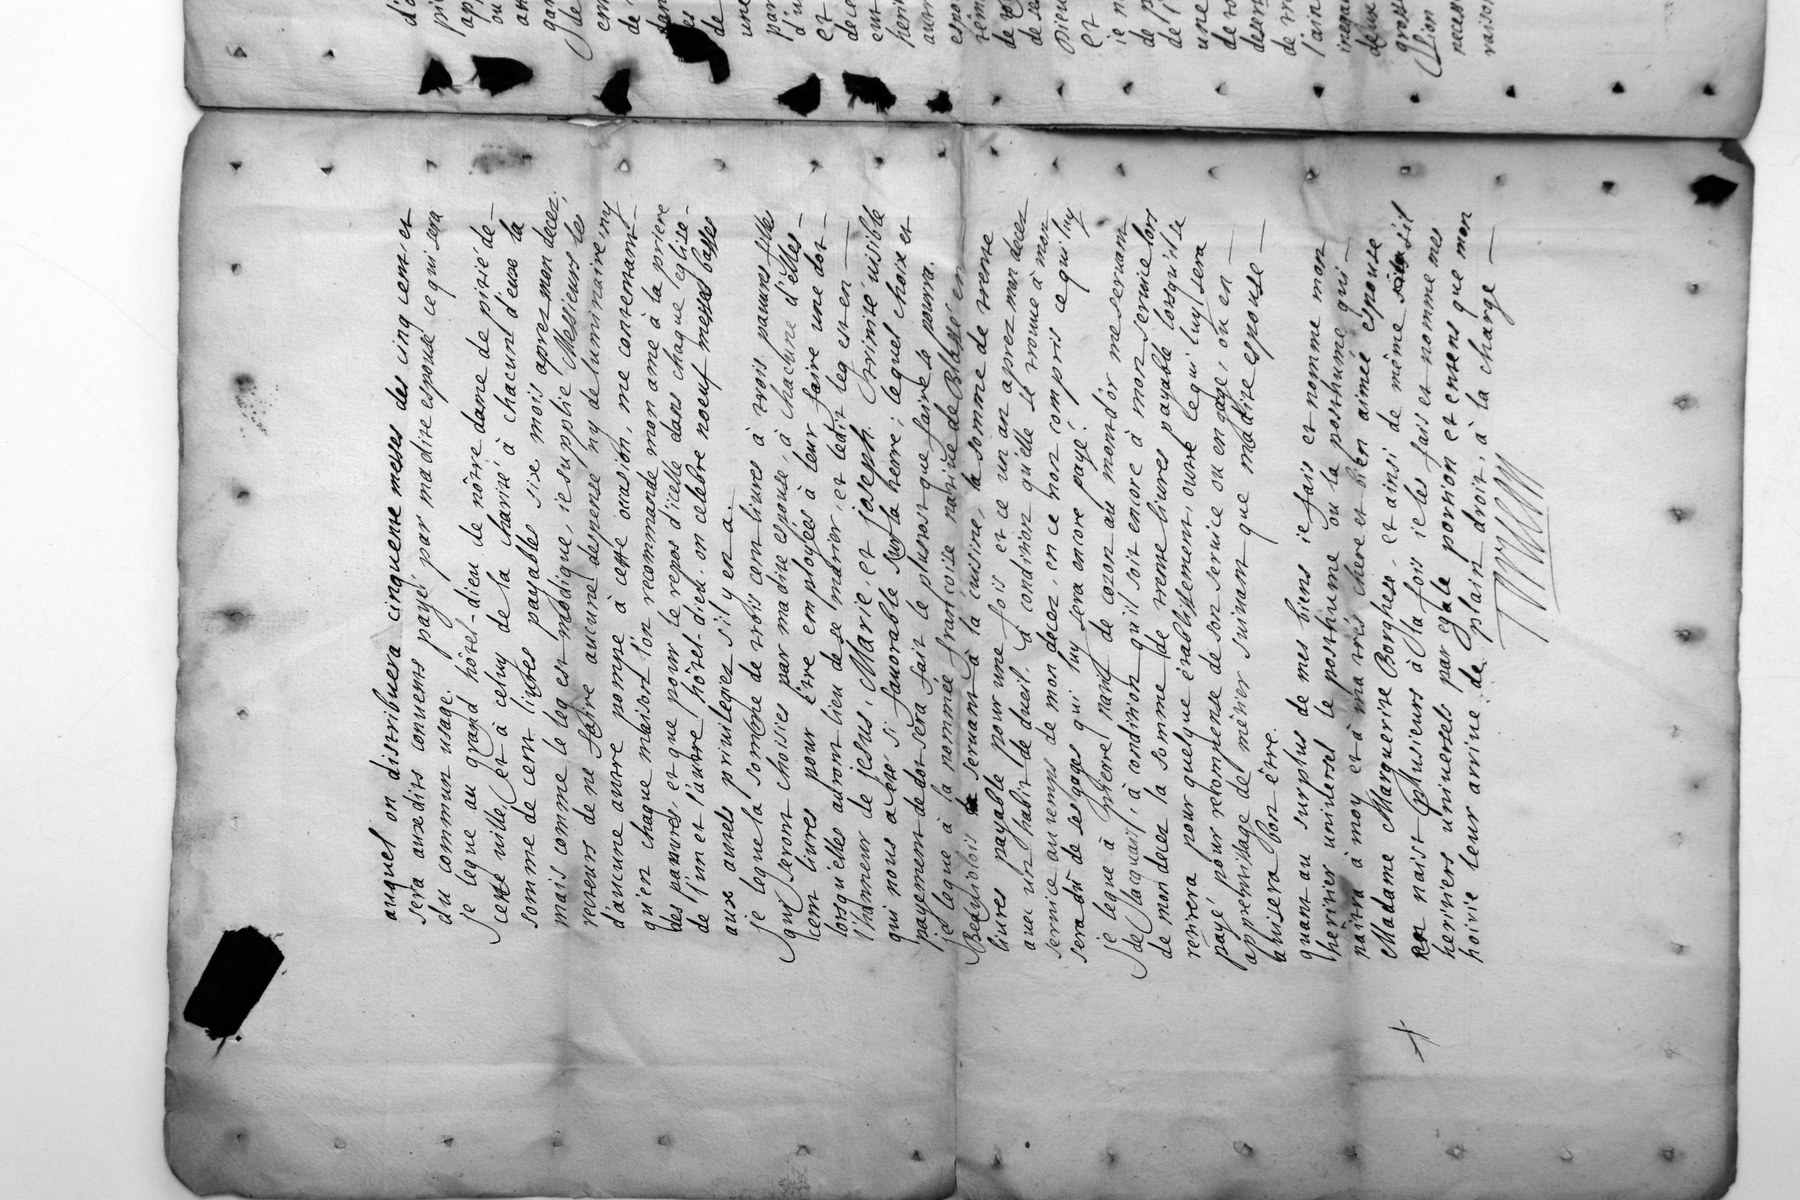 auquel on distribuera cinquente messes des cinq cent et
sera auxdits convents payé par madite espouse ce qui sera
du commun usage.
je legue au grand hôtel-dieu de nôtre dame de pitié de
cette ville, et à celuy de la charité à chacund'euxe la
somme de cent livres payables sixe mois aprez mon decez,
mais comme le leg est modique, ie supplie Messieurs les
recteurs de ne faire aucune depense ny de luminaire, ny
d'aucune autre pompe à cette occasion, me contentant
qu'en chaque maison l'on recommande mon ame à la priere
des pauures, et que pour le repos d'icelle dans chaque eglise
de l'un et l'autre hôtel-dieu on celebre noeuf messes basses
aux autels priuilegiez s'il y en a.
je legue la somme de trois cent liures à trois pauures filles
qui seront choisies par madite epouse, à chacune d'elles
cent liures pour être employées à leur faire une dot
lorsqu'elles auront lieu de se marier, et ledit leg est en
l'honneur de jesus, Marie, et joseph trinité uisible
qui nous a été si fauorable sur la terre; lequel choix et
payement de dot sera fait le plustost que faire se pourra.
je legue à la nommée francoise natiue de Blassé en
Beaujolois seruant à la cuisine, la somme de trente
liures payable pour une fois et ce un an aprez mon decez
auec un habit de dueil à condition qu'elle se trouue à mon
seruice au tems de mon decez, en ce non compris ce qui luy
sera dû de ses gages qui luy sera encore payé.
je legue à pierre natif de cozon au montd'or me seruant
de Laquais, à condition qu'il soit encore à mon seruice lors
de mon decez la somme de trente liures payable lorsqu'il se
retirera pour quelque établissement, outre ce qui luy sera
payé pour recompense de son seruice ou en gage, ou en
apprentissage de métier suiuant que madite espouse
auisera bon être.
quant au surplus de mes biens ie fais et nomme mon
heritier uniuersel le posthume ou la posthume qui
naîtra à moy et à ma tres chere et bien aimée espouse
Madame Marguerite Borghes, et ainsi de même s'il
en naist plusieurs à la fois ie les fais et nomme mes
heritiers uniuersels par egale portion et entens que mon
hoirie leur arriue de plain droit, à la charge